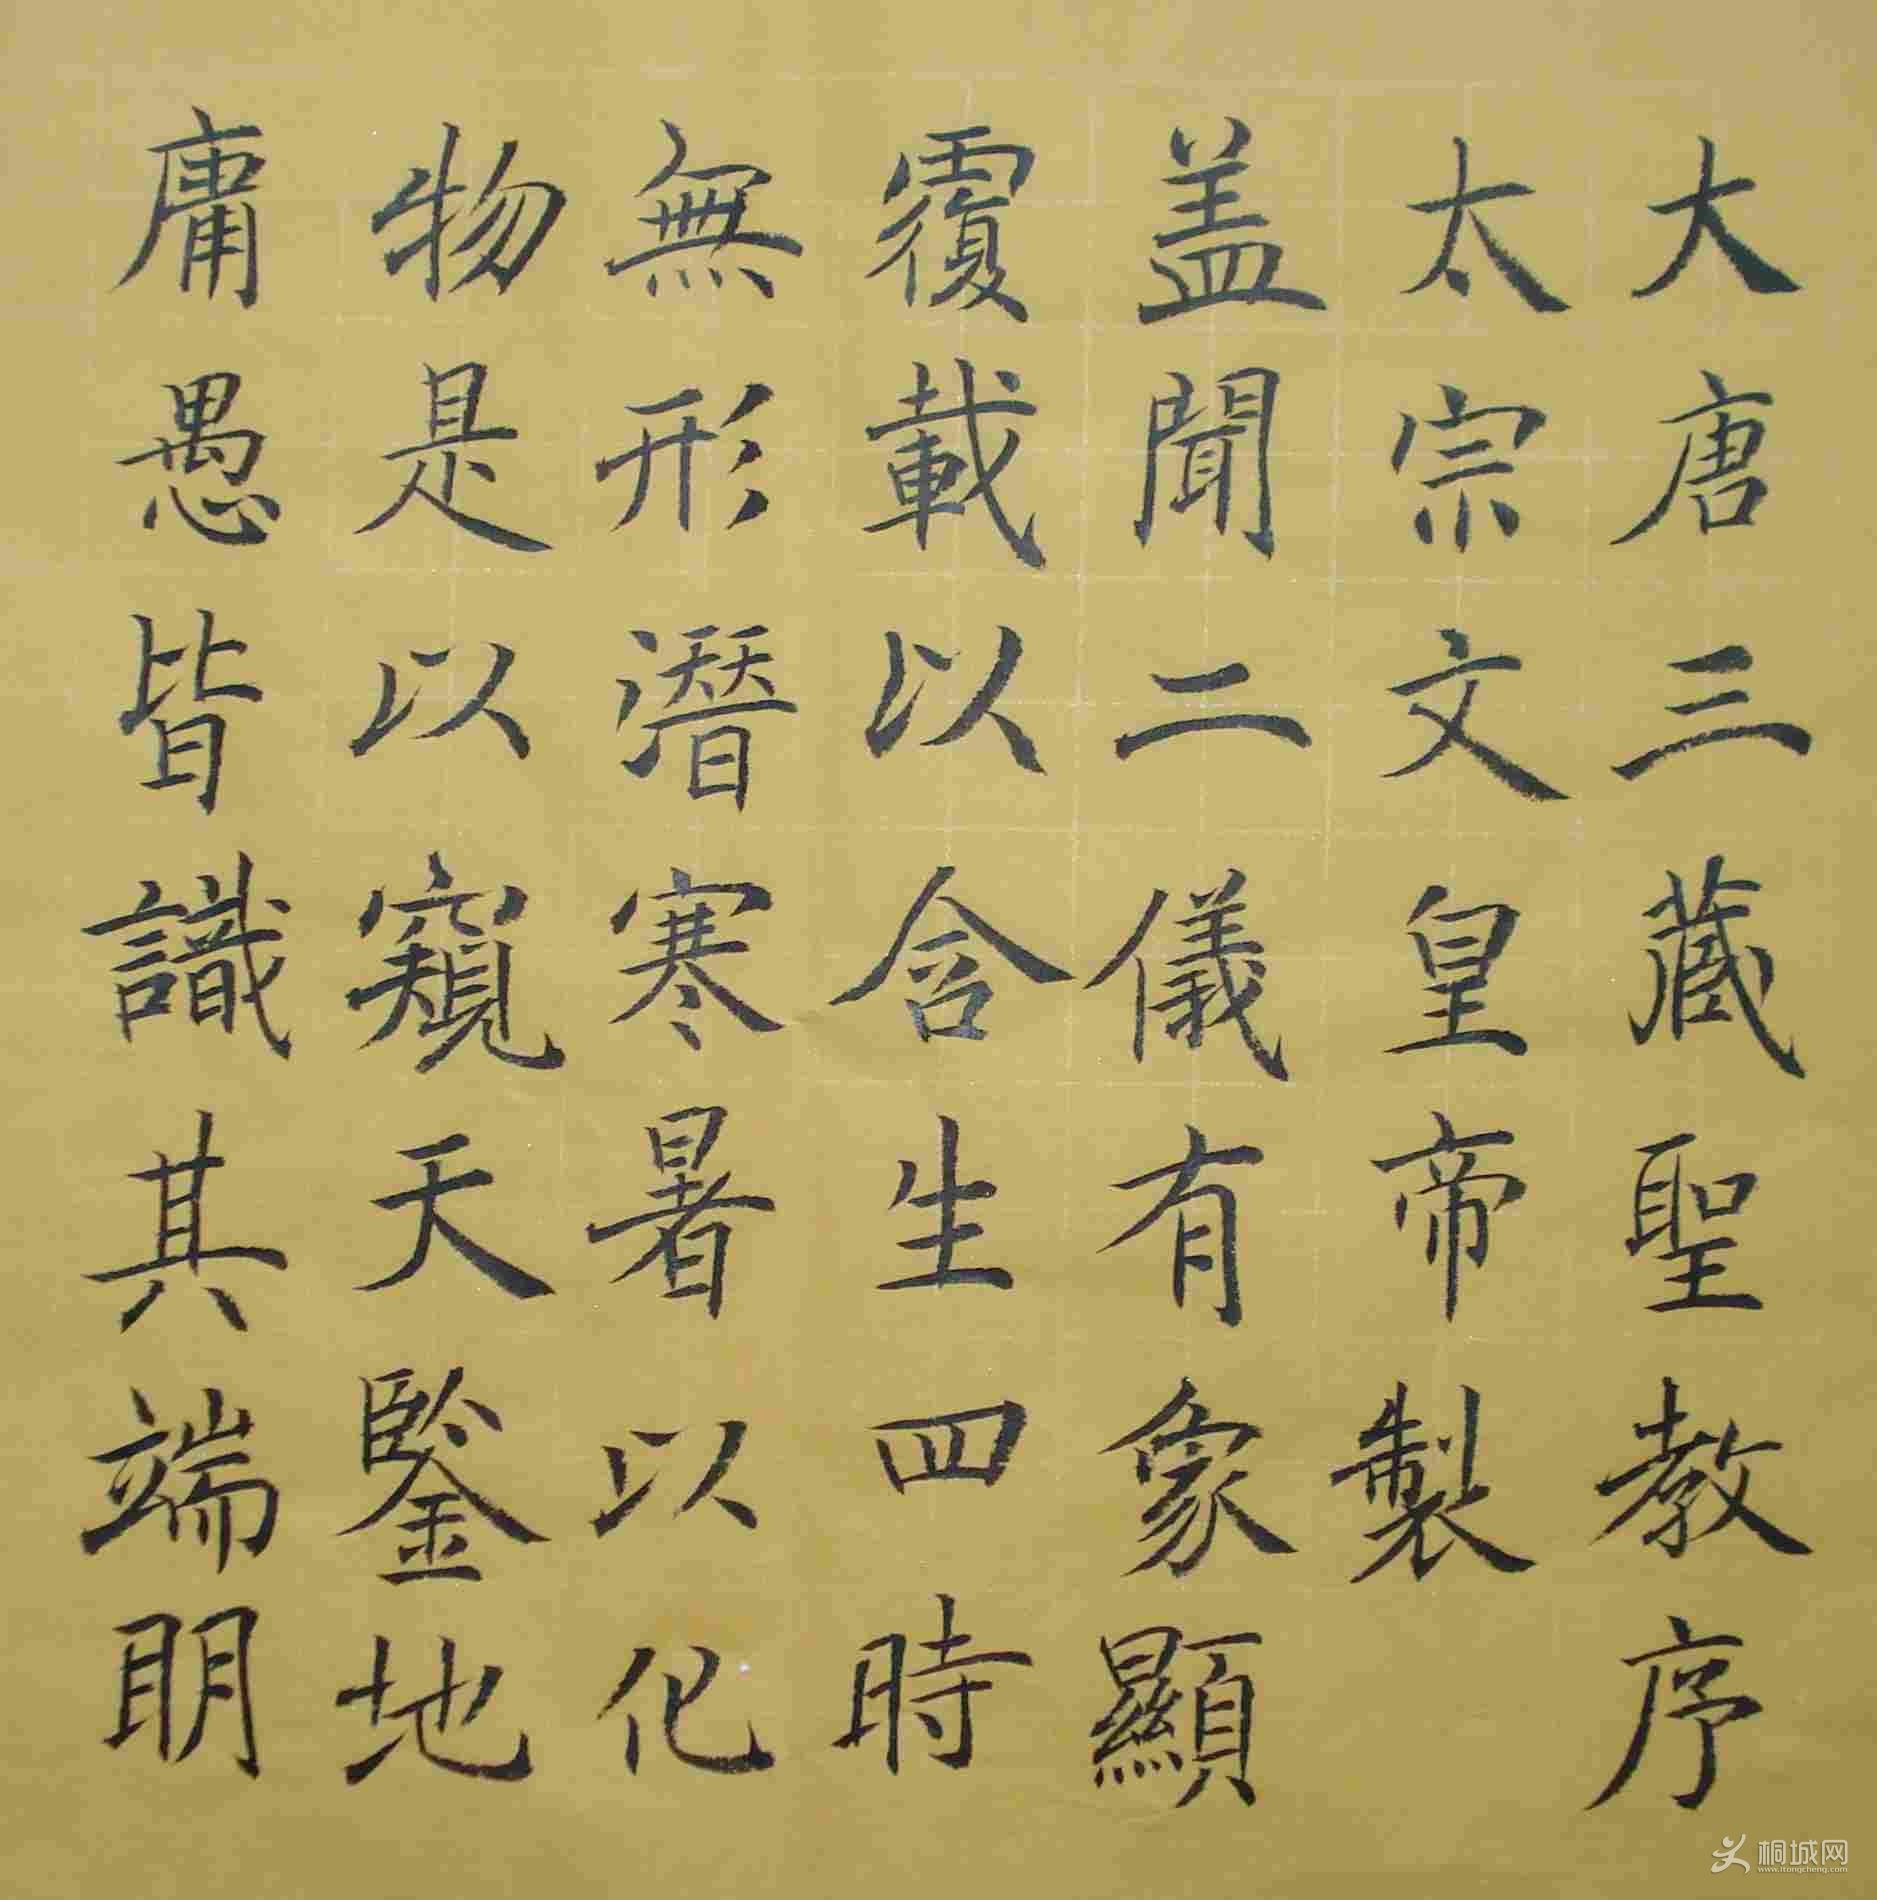 大唐三藏聖教序
太宗文皇帝製
盖聞二儀有象顯
覆載以含生四時
無形潛寒暑以化
物是以窺天鑒地
庸愚皆識其端明
桐城网
www.itongcheng.com